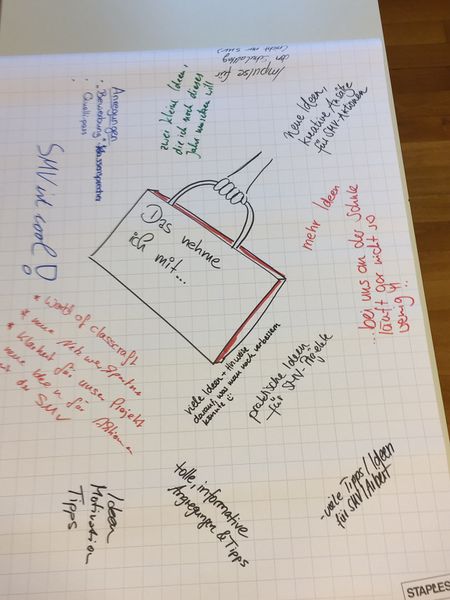 Impulse für
den Schulalltag
(nicht nur SMV)
Anregungen
: Bewerbung
: Qualipass
zwei kleine Ideen,
die ich noch dieses
Jahr umsetzen will
neue Ideen,
kreative Ansätze
für SMV-Aktionen
SMV ist cool!
Das nehme
ich mit...
mehr Ideen
...bei uns an der Schule
läuft gar nicht so
wenig!!
* World of classcraft
* neue
* Klarheit für unser Projekt
* neue Ideen für Aktionen
in der SMV
viele Ideen + Hinweise
darauf, was man noch verbessern
könnte ☺
praktische Ideen
für SMV-Projekte
Ideen
Motivation
Tipps
tolle, informative
Anregungen & Tipps
- viele Tipps / Ideen
für SMV Arbeit
STAPLES